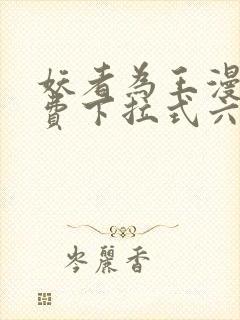 妖者為王漫
費下拉式六
岑麗香